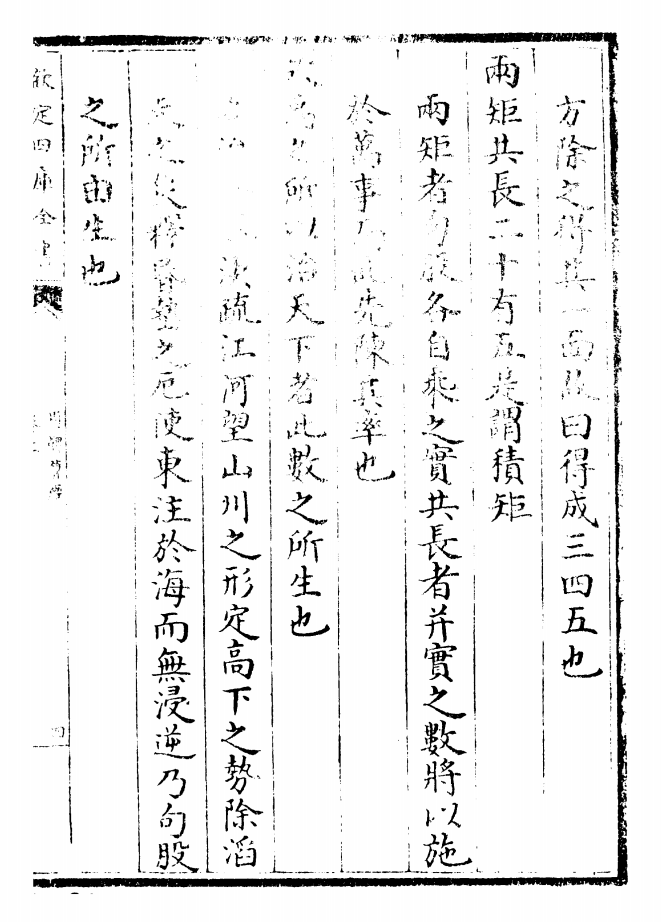 方除之得其一面故曰得成三四五也
兩矩共長二十有五是謂積矩
兩矩者句股各自乘之實共長者并實之數將以施
於萬事而此先陳其率也
故禹之所以治天下者此數之所生也
禹治洪水決疏江河望山川之形定高下之勢除滔
天之災釋昏墊之厄使東注於海而無浸逆乃句股
之所由生也
欽定四庫全書
周髀算經
四